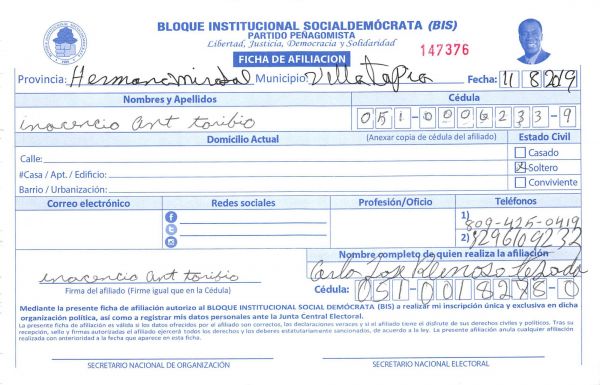 BLOQUE INSTITUCIONAL SOCIALDEMÓCRATA (BIS)
PARTIDO PEÑAGOMISTA
Libertad, Justicia, Democracia y Solidaridad
FICHA DE AFILIACION
147376
Provincia: Hermana mirabal Municipio Villa tapia Fecha: 11 8 2019
Nombres y Apellidos
Cédula
inocencio Ant toribio
051-0006233-9
Domicilio Actual
(Anexar copia de cédula del afiliado)
Estado Civil
Calle:
Casado
#Casa / Apt. / Edificio:
Soltero
Barrio / Urbanización:
Conviviente
Correo electrónico
Redes sociales
Profesión/Oficio
Teléfonos
1) 809-425-0419
2) 8296109232
Nombre completo de quien realiza la afiliación
inocencio Ant toribio
Carlos Jose
Firma del afiliado (Firme igual que en la Cédula)
Cédula: 051-0018278-0
Mediante la presente ficha de afiliación autorizo al BLOQUE INSTITUCIONAL SOCIAL DEMÓCRATA (BIS) a realizar mi inscripción única y exclusiva en dicha
organización política, así como a registrar mis datos personales ante la Junta Central Electoral.
La presente ficha de afiliación es válida si los datos ofrecidos por el afiliado son correctos, las declaraciones veraces y si el afiliado tiene el disfrute de sus derechos civiles y políticos. Tras su
recepción, selle y firmas autorizadas el afiliado ejercerá todos los derechos y los deberes estatutariamente sancionados, de acuerdo a la ley. La presente afiliación anula cualquier afiliación
realizada con anterioridad a la fecha que aparece en esta ficha.
SECRETARIO NACIONAL DE ORGANIZACIÓN
SECRETARIO NACIONAL ELECTORAL